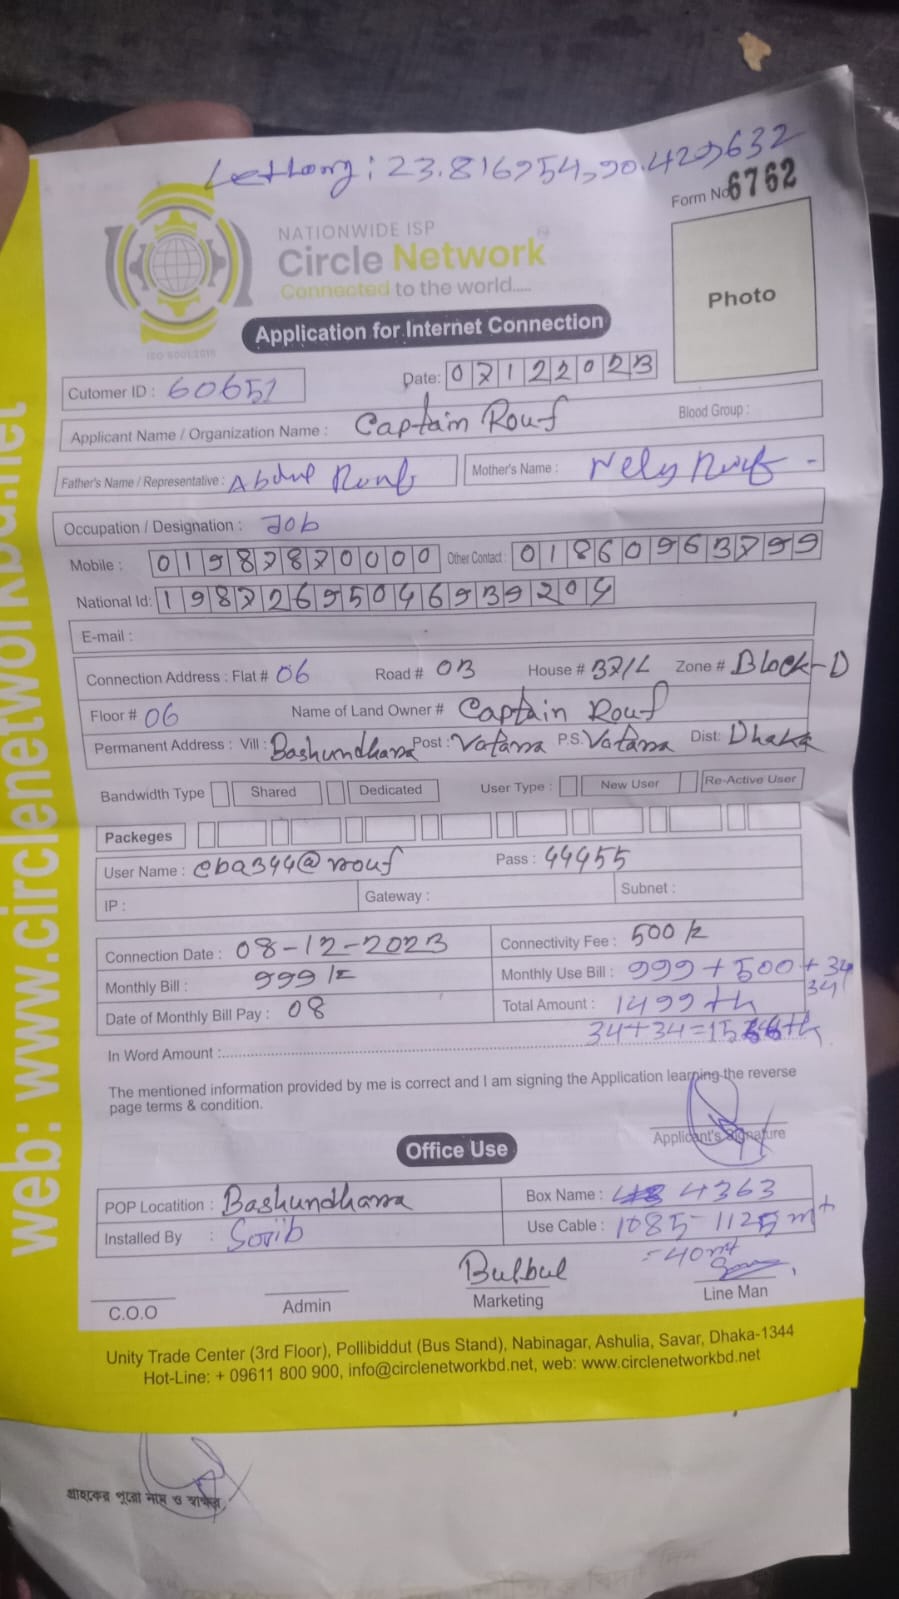 Lettlong: 23.816754,90.429632
Form No 6762
NATIONWIDE ISP
Circle Network
Connected to the world.....
ISO 9001:2015
Photo
Application for Internet Connection
Cutomer ID : 60651
Date: 07122023
Applicant Name / Organization Name : Captain Rouf
Blood Group :
Father's Name / Representative : Abdul Rouf
Mother's Name : Nely Rouf -
Occupation / Designation : Job
Mobile : 01987870000 Other Contact : 01860963799
National Id: 19872695046939204
E-mail :
Connection Address : Flat # 06 Road # 03 House # 37/L Zone # Block-D
Floor # 06 Name of Land Owner # Captain Rouf
Permanent Address : Vill : Bashundhara Post : Vatara P.S. Vatara Dist: Dhaka
Bandwidth Type Shared Dedicated User Type : New User Re-Active User
Packeges
User Name : cba344@rouf Pass : 44455
IP : Gateway : Subnet :
Connection Date : 08-12-2023 Connectivity Fee : 500/=
Monthly Bill : 999/= Monthly Use Bill : 999+500+34
34
Date of Monthly Bill Pay : 08 Total Amount : 1499 tk
34+34=15
In Word Amount :
The mentioned information provided by me is correct and I am signing the Application learning the reverse
page terms & condition.
Applicant's Signature
Office Use
POP Locatition : Bashundhara Box Name : 4363
Installed By : Use Cable : 1085-1125 mt
=40mt
Bulbul
C.O.O Admin Marketing Line Man
Unity Trade Center (3rd Floor), Pollibiddut (Bus Stand), Nabinagar, Ashulia, Savar, Dhaka-1344
Hot-Line: + 09611 800 900, info@circlenetworkbd.net, web: www.circlenetworkbd.net
web: www.circlenetworkbd.net
গ্রাহকের পুরো নাম ও স্বাক্ষর